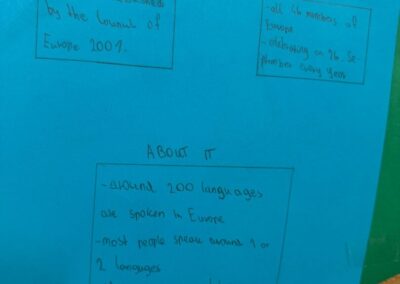 by the Council of
Europe 2001.
-all 46 members of
Europe
-celebrating on 26. Se
ptember every year
ABOUT IT
-around 200 languages
are spoken in Europe
-most people speak around 1 or
2 languages